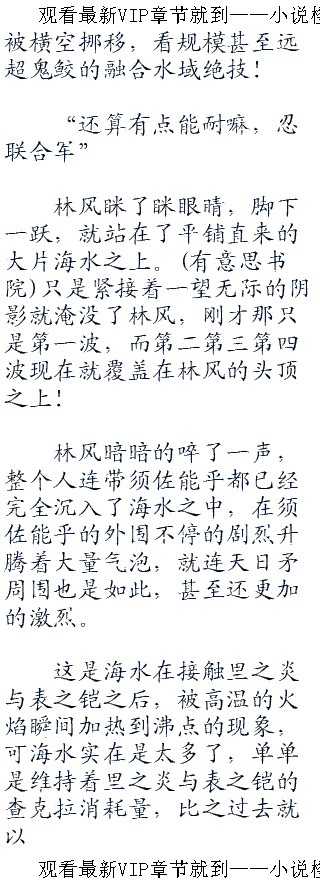 观看最新VIP章节就到——小说检
被横空挪移，看规模甚至远
超鬼鲛的融合水域绝技！
“还算有点能耐嘛，忍
联合军”
林风眯了眯眼睛，脚下
一跃，就站在了平铺直来的
大片海水之上。(有意思书
院)只是紧接着一望无际的阴
影就淹没了林风，刚才那只
是第一波，而第二第三第四
波现在就覆盖在林风的头顶
之上！
林风暗暗的啐了一声，
整个人连带须佐能乎都已经
完全沉入了海水之中，在须
佐能乎的外围不停的剧烈升
腾着大量气泡，就连天日矛
周围也是如此，甚至还更加
的激烈。
这是海水在接触里之炎
与表之铠之后，被高温的火
焰瞬间加热到沸点的现象，
可海水实在是太多了，单单
是维持着里之炎与表之铠的
查克拉消耗量，比之过去就
以
观看最新VIP章节就到——小说检